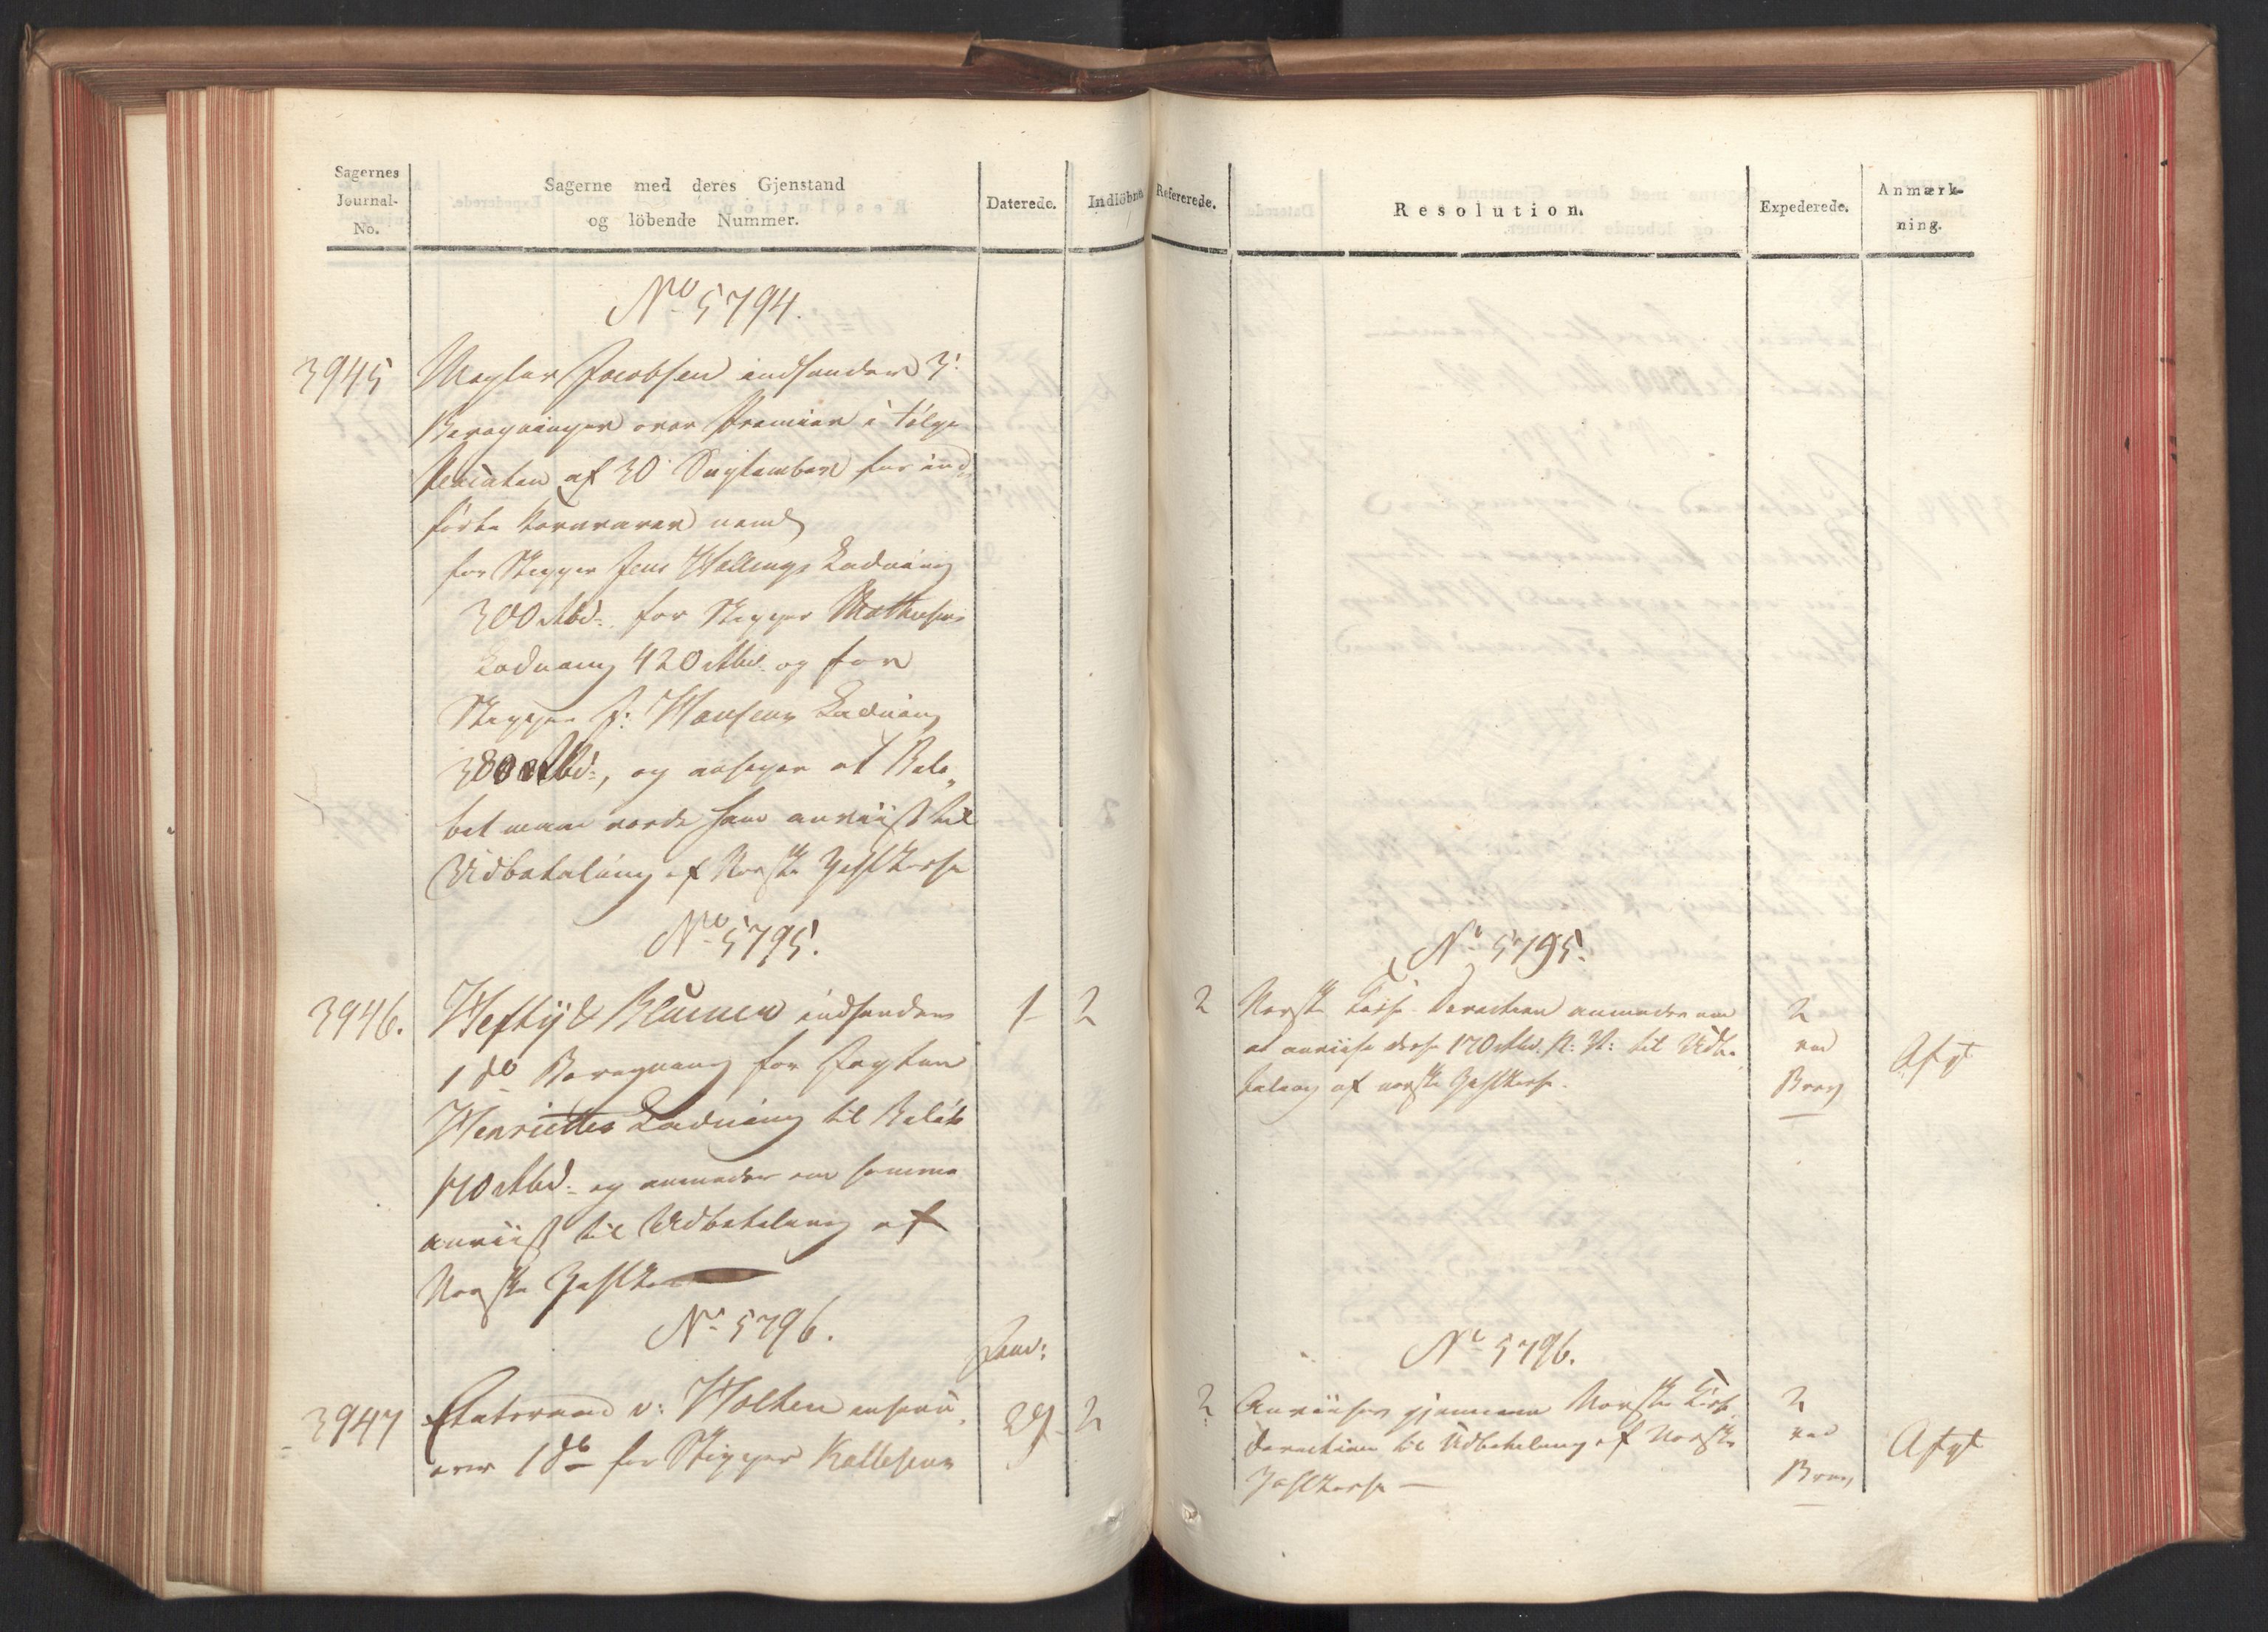 Sagernes
Journal-
No.
Sagerne med deres Gjenstand
og löbende Nummer.
Daterede.
Indlöbne
No 5794.
3945
Mægler Jacobsen indsender 3:
Beregninger over Præmier i fölge
Placaten af 30 September for ind-
förte Kornvarer nemlig
for Skipper Jens Wallengs Ladning
300 Rbd: for Skipper Mathiesens
Ladning 420 Rbd: og for
Skipper P: Hansens Ladning
380 Rbd:, og ansöger at Belö-
bet maae vorde ham anviist til
Udbetaling af Norske Zahlkasse
No 5795.
3946.
Heftÿ & Blumer indsender
1 do Beregning for Jagten
Henriettes Ladning til Belöb
170 Rbd: og anmoder om samme
anviist til Udbetaling af
Norske Zahlkasse
1
2
No 5796.
3947
Etatsraad v: Holten
over 1 do for Skipper Kallesens
Janv:
29
2
Refererede.
Resolution.
Expederede.
Anmærk-
ning.
No 5795.
2
Norske Direction anmodes om
at anviise disse 170 Rbd: N: V: til Udbe-
taling af norske Zahlkasse.
2
ved
Brev
Afgt
No 5796.
2
Anviises gjennem Norske
direction til Udbetaling af Norske
Zahlkasse
2
ved
Brev
Afgt